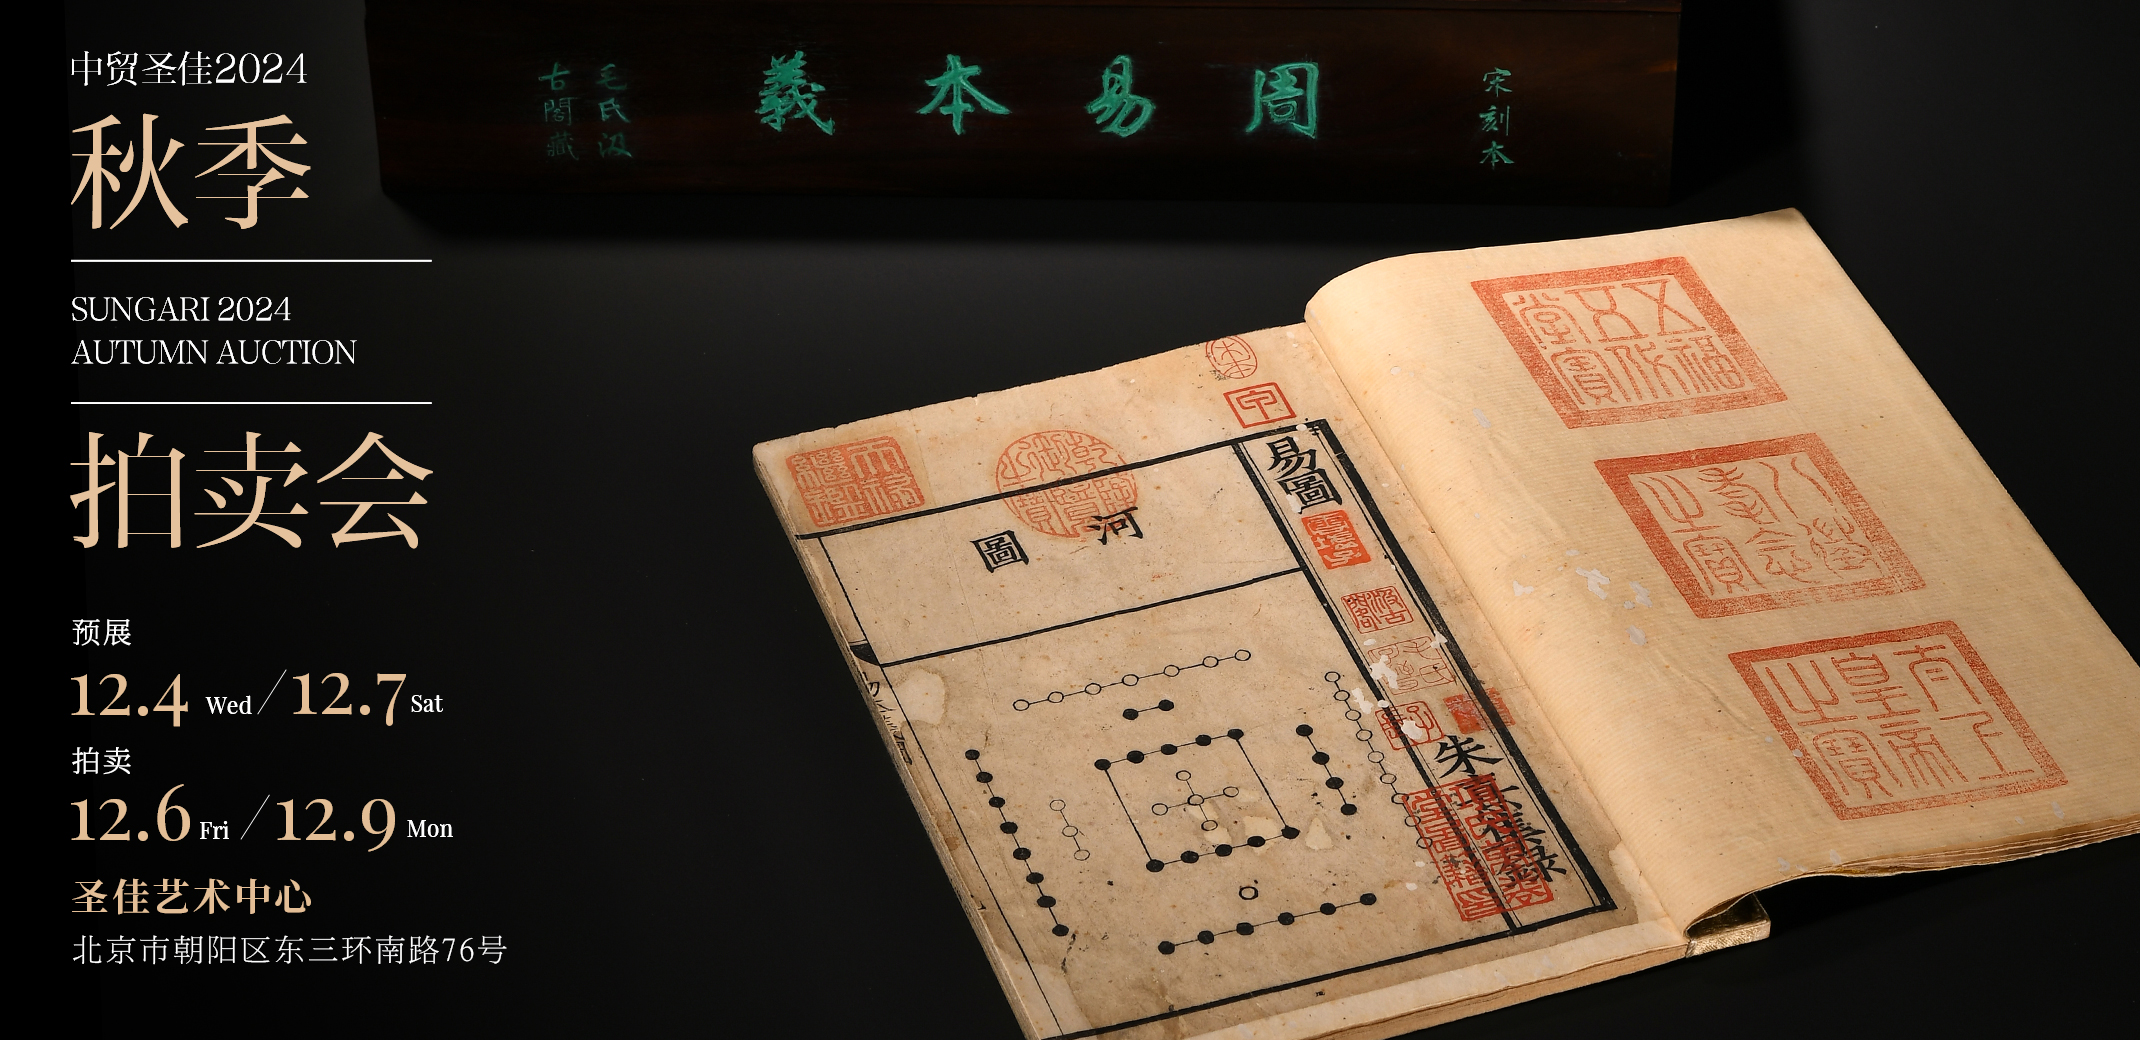 中贸圣佳2024
秋季
SUNGARI 2024
AUTUMN AUCTION
拍卖会
预展
12.4 Wed/12.7 Sat
拍卖
12.6 Fri/12.9 Mon
圣佳艺术中心
北京市朝阳区东三环南路76号
宋刻本
周易本義
毛氏汲
古閣藏
五福
五代
堂寶
八徵
耄念
之寶
古稀
天子
之寶
易圖
河圖
朱真僊錄
甲
汲古閣
天祿
繼鑑